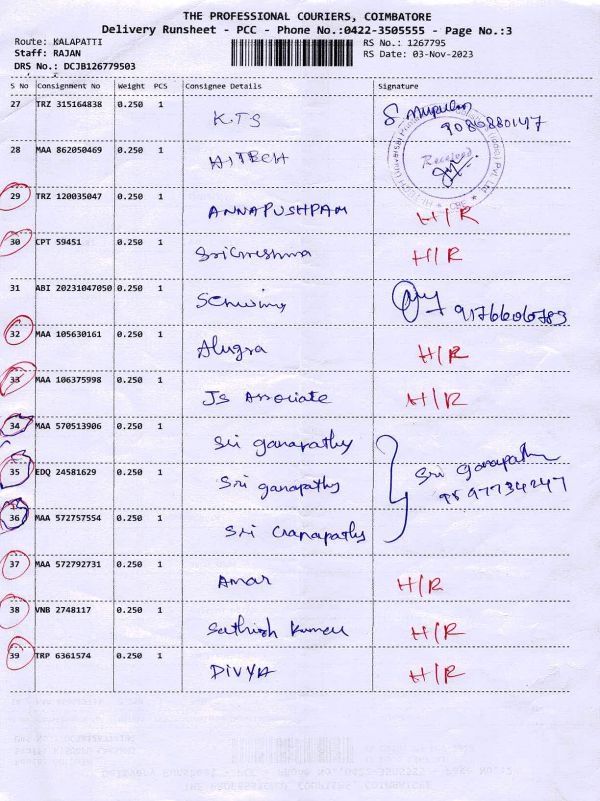 THE PROFESSIONAL COURIERS, COIMBATORE
Delivery Runsheet - PCC - Phone No.:0422-3505555 - Page No.:3
Route: KALAPATTI RS No.: 1267795
Staff: RAJAN RS Date: 03-Nov-2023
DRS No.: DCJB126779503
S No Consignment No Weight PCS Consignee Details Signature
27 TRZ 315164838 0.250 1 K.T.S
9080880147
28 MAA 862050469 0.250 1 HITECH Received
29 TRZ 120035047 0.250 1 ANNAPUSHPAM H/R
30 CPT 59451 0.250 1 SriGreshma H/R
31 ABI 20231047050 0.250 1 Schwing 9176606783
32 MAA 105630161 0.250 1 Alugra H/R
33 MAA 106375998 0.250 1 JS Associate H/R
34 MAA 570513906 0.250 1 Sri ganapathy
35 EDQ 24581629 0.250 1 Sri ganapathy Sri Ganapathy
9597734247
36 MAA 572757554 0.250 1 Sri Ganapathy
37 MAA 572792731 0.250 1 Amar H/R
38 VNB 2748117 0.250 1 Sathish Kumar H/R
39 TRP 6361574 0.250 1 DIVYA H/R